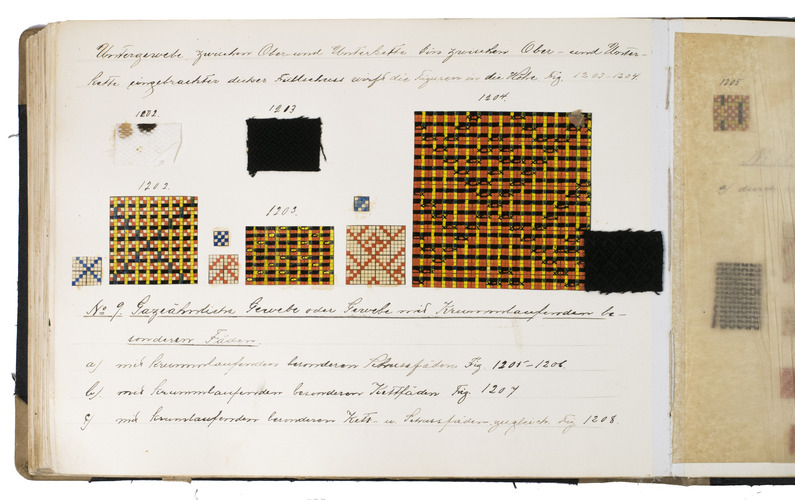 Untergewebe zwischen Ober- und Unterkette ein zwischen Ober- und Unter-
kette eingebrachter dicker Füllschuss wirft die Figuren in die Höhe Fig. 1203-1204.
1202. 1203 1204.
1202. 1203.
No 9. Gazeähnliche Gewebe oder Gewebe mit Krummlaufenden be-
sonderen Fäden.
a) mit krummlaufenden besonderen Schussfäden Fig. 1205-1206
b) mit krummlaufenden besonderen Kettfäden Fig. 1207
c) mit krumlaufenden besonderen Kett- u. Schussfäden zugleich Fig 1208.
1205